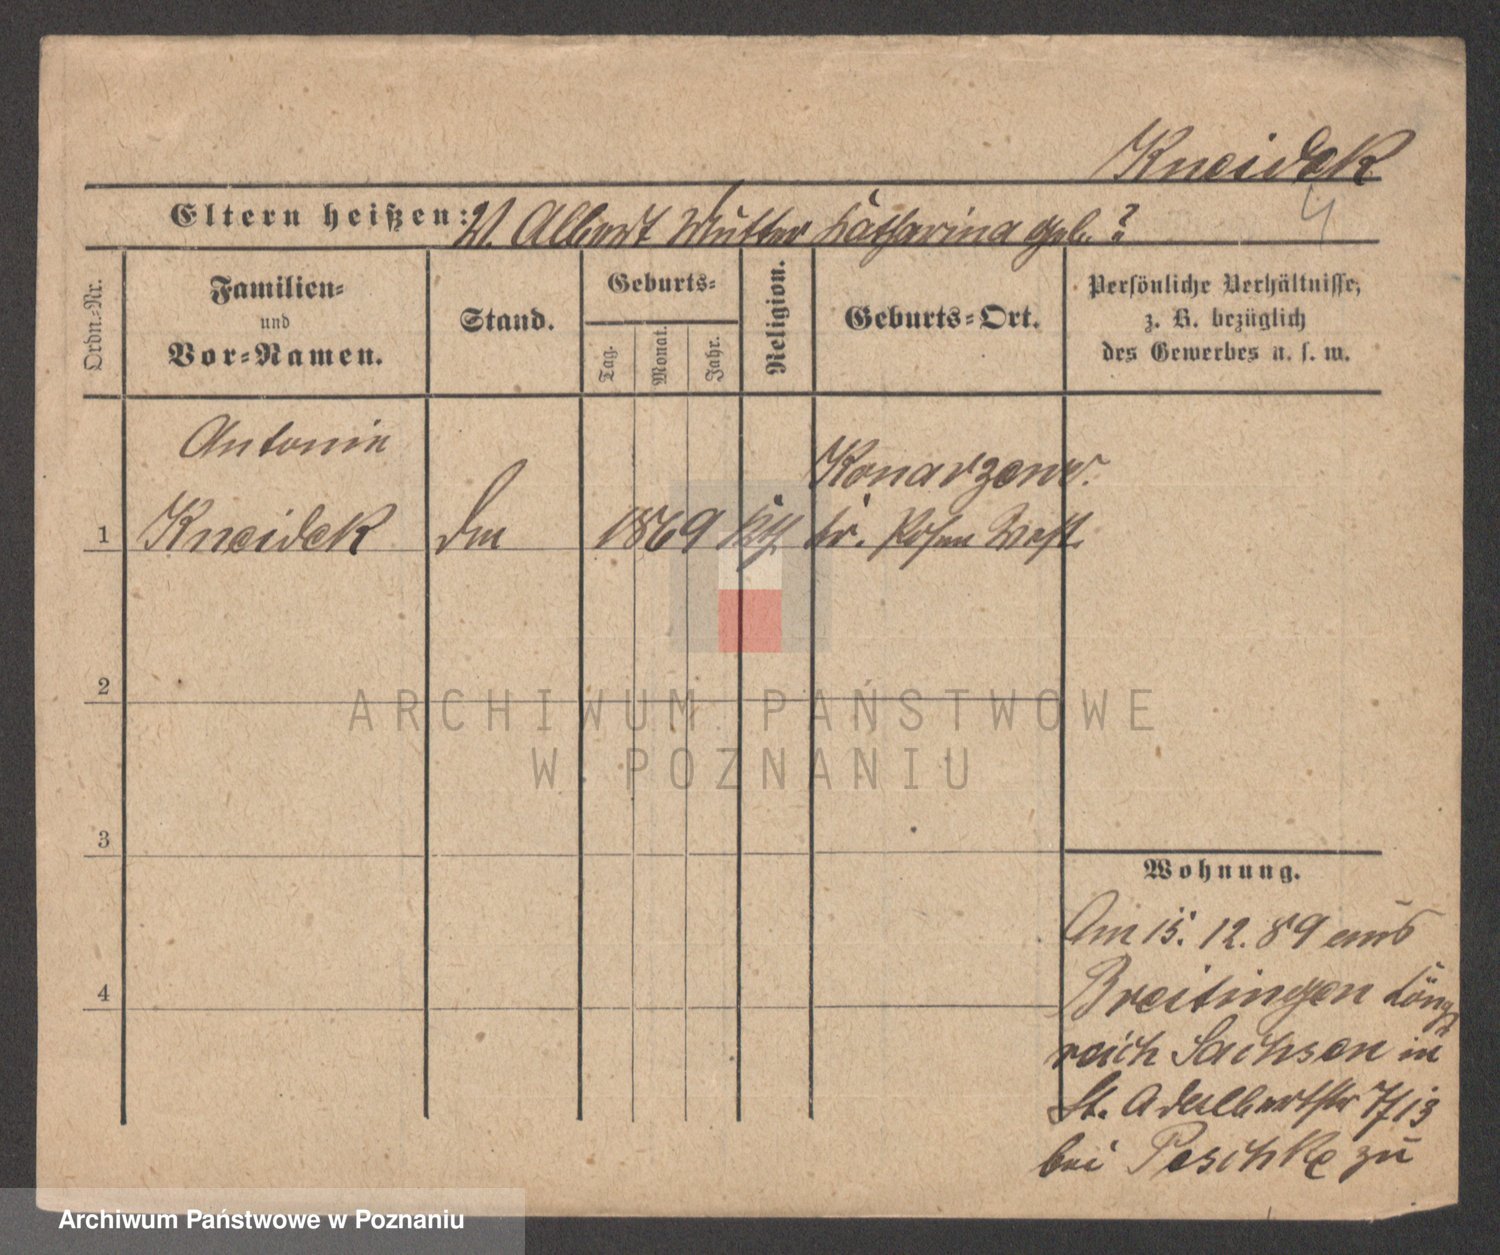 Kneidek
4
Eltern heißen: V. Albert Mutter Katharina geb. ?
Ordn.-Nr.
Familien-
und
Vor-Namen.
Stand.
Geburts-
Tag.
Monat.
Jahr.
Religion.
Geburts-Ort.
Persönliche Verhältnisse,
z. B. bezüglich
des Gewerbes u. s. w.
Antonie
Konarzewo.
1 Kneidek 1869 kth Kr. Posen West.
2
3
4
Wohnung.
Am 15. 12. 89 aus
Breitingen König
reich Sachsen in
St. Adalbertstr 7/13
bei Peschke zu
ARCHIWUM PAŃSTWOWE
W POZNANIU
Archiwum Państwowe w Poznaniu